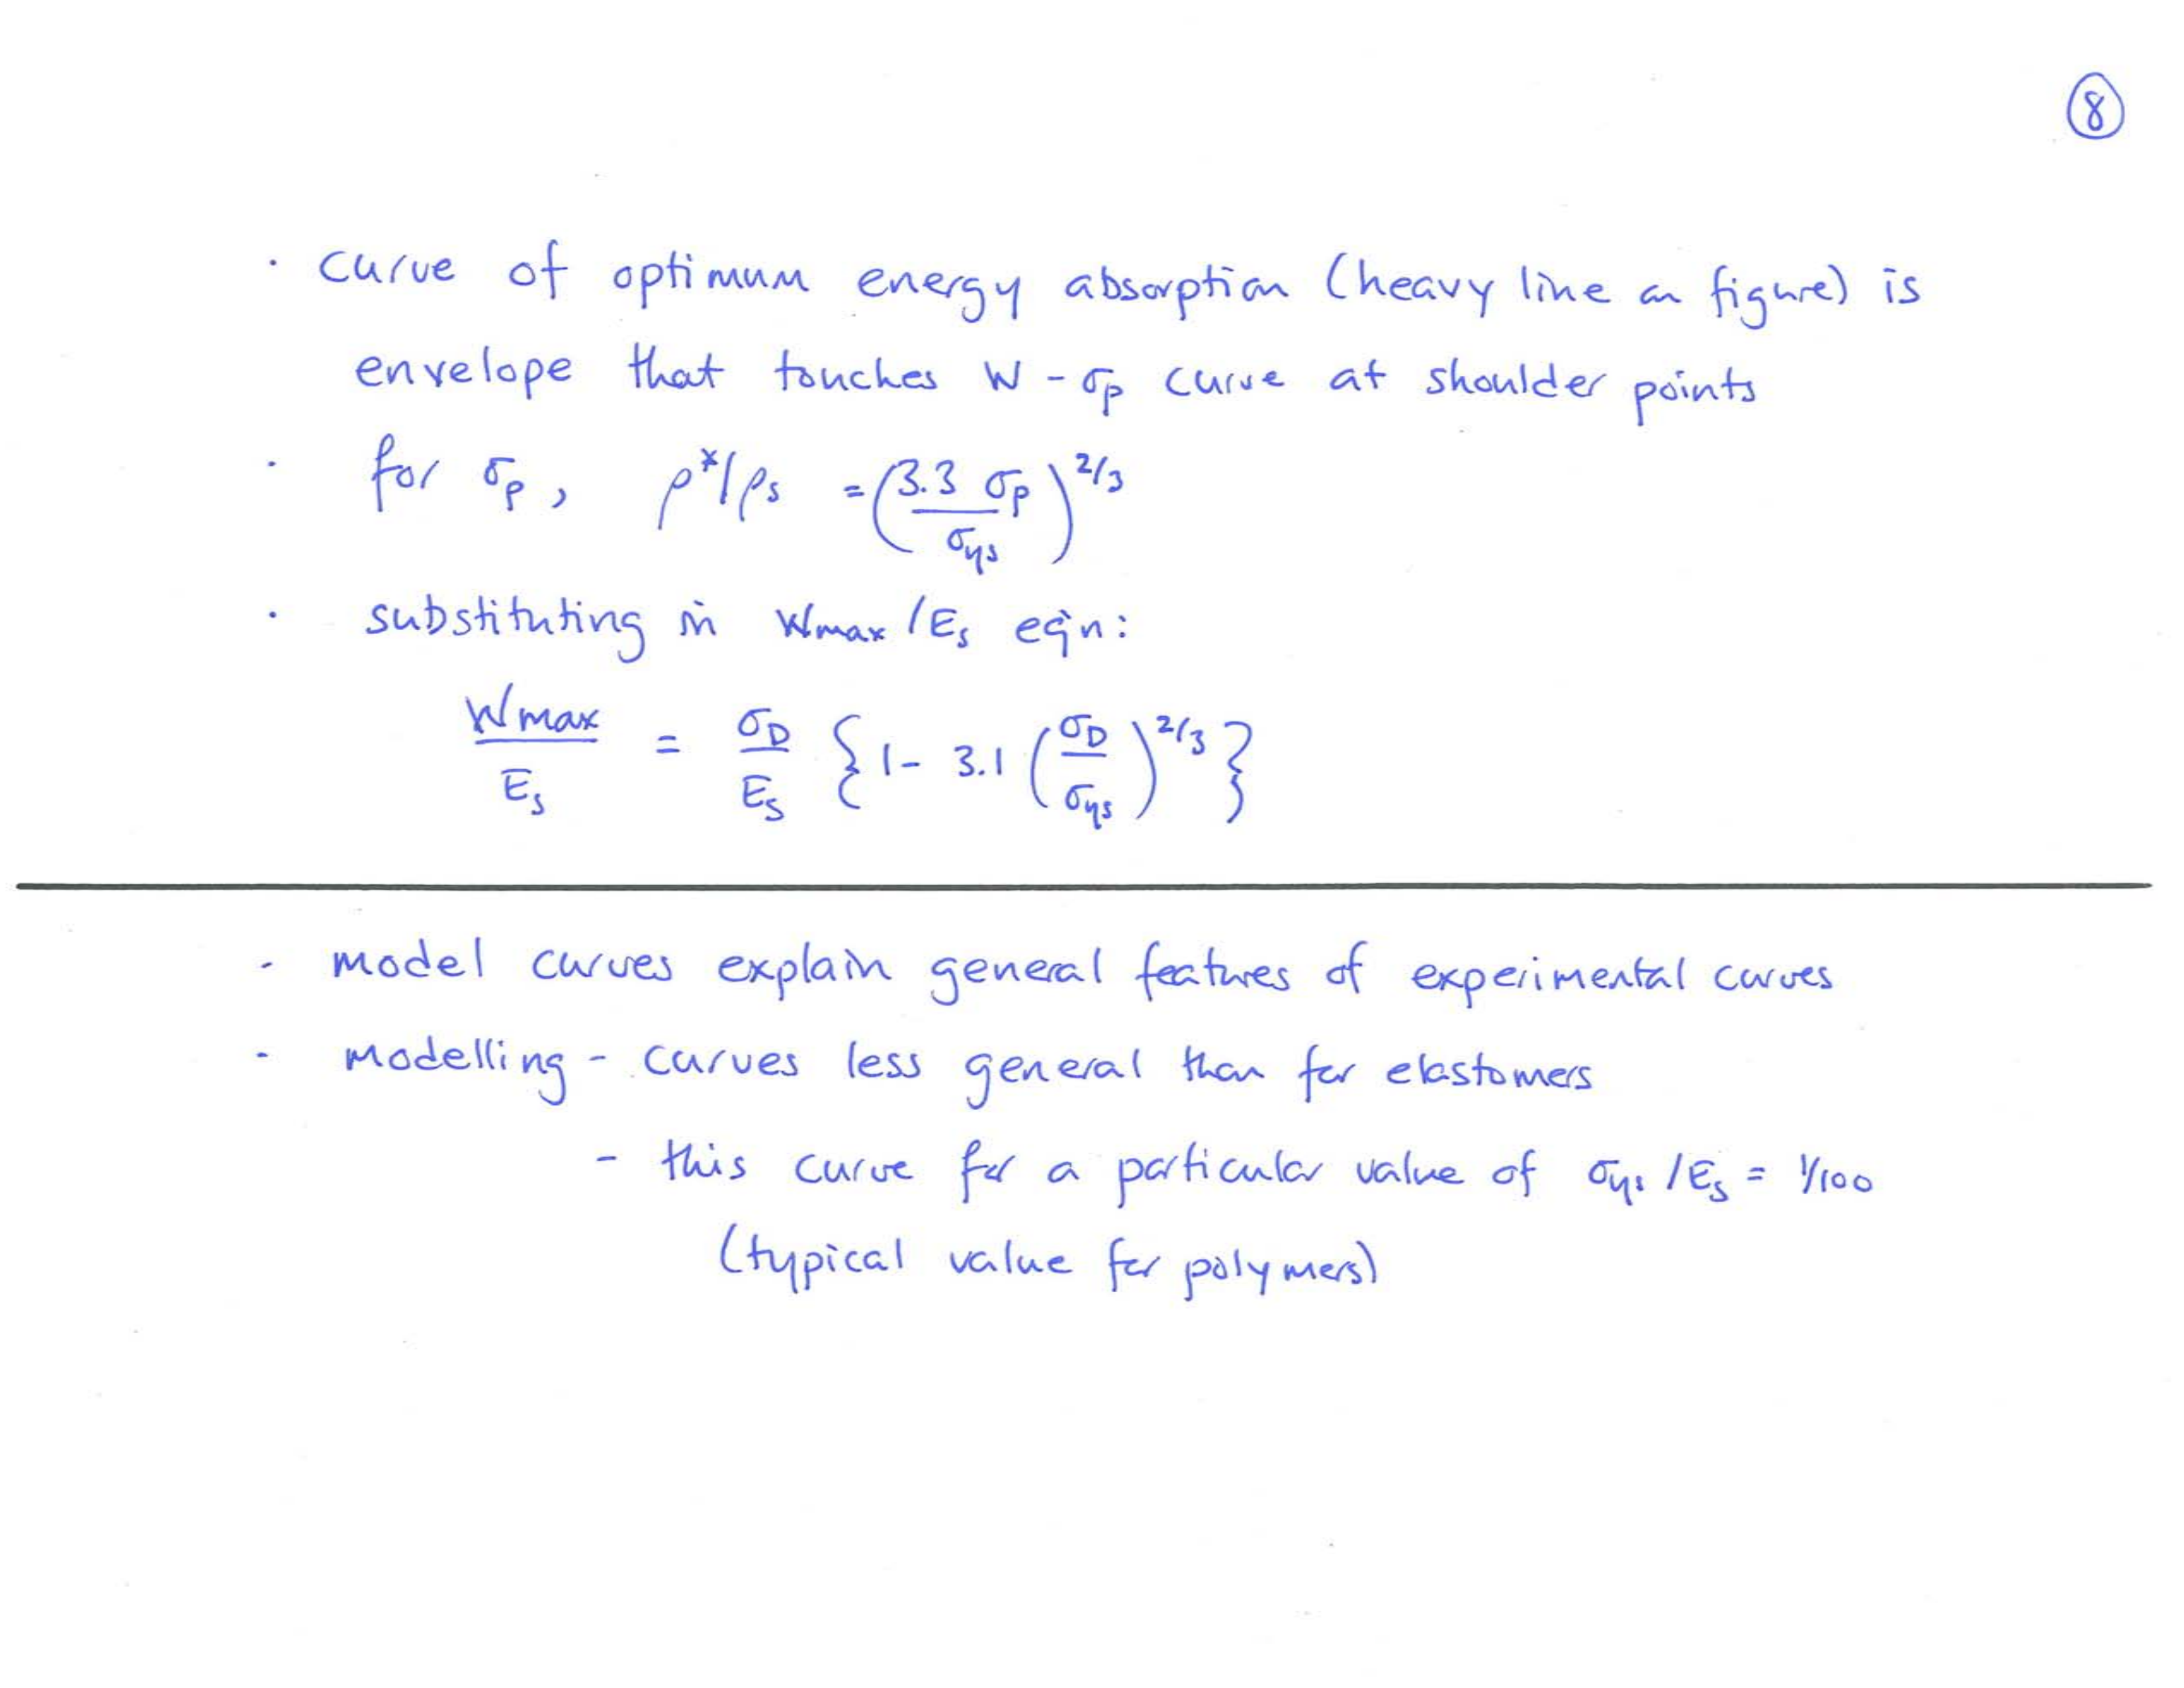 8
· curve of optimum energy absorption (heavy line on figure) is
envelope that touches W - σp curve at shoulder points
· for σp, ρ*/ρs = (3.3 σp / σys)^2/3
· substituting in Wmax/Es eqn:
Wmax/Es = σD/Es {1 - 3.1 (σD/σys)^2/3}
- model curves explain general features of experimental curves
- modelling - curves less general than for elastomers
- this curve for a particular value of σys/Es = 1/100
(typical value for polymers)